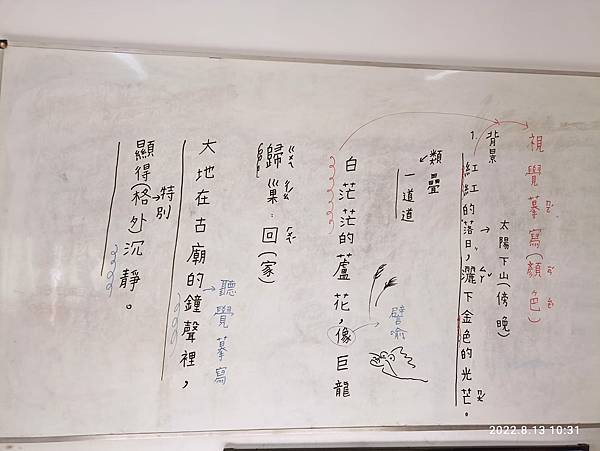 視覺摹寫(顏色)
1. 背景
紅紅的落日，灑下金色的光芒。
ㄙㄚˇ
太陽下山(傍晚)
類疊
一道道
白茫茫的蘆花，像巨龍
譬喻
歸巢：回(家)
大地在古廟的鐘聲裡，
聽覺摹寫
顯得(格外沉靜。
特別
2022.8.13 10:31